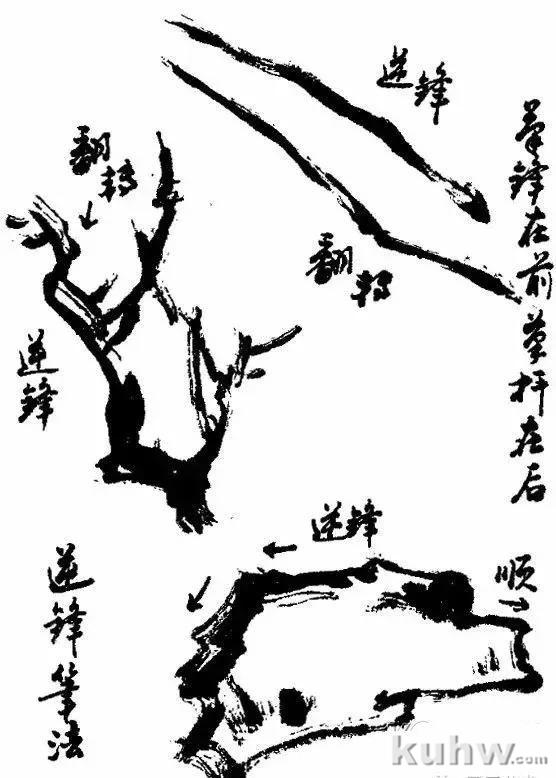 逆锋
笔锋在前笔杆在后
翻转
翻转
逆锋
逆锋
顺
逆锋笔法
kuhw.com